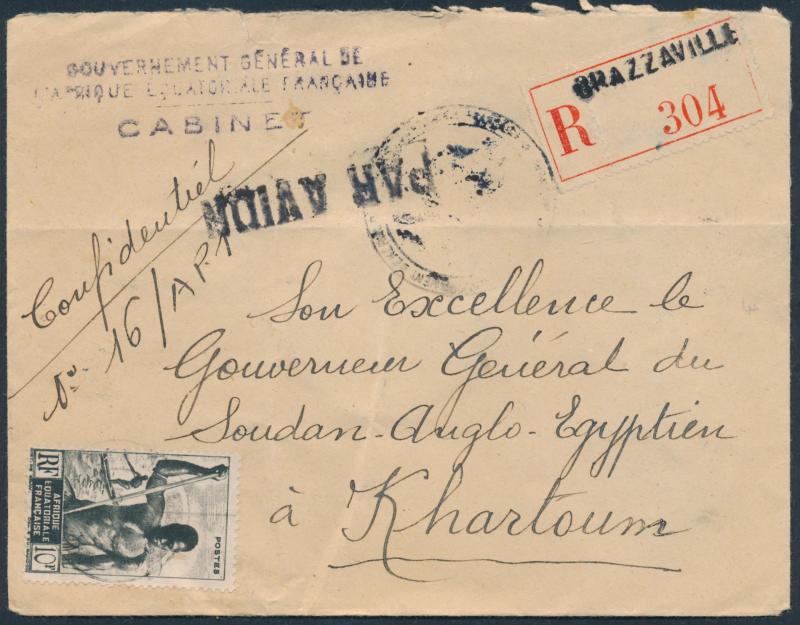 GOUVERNEMENT GÉNÉRAL DE
L'AFRIQUE EQUATORIALE FRANÇAISE
CABINET
BRAZZAVILLE
R 304
PAR AVION
Confidentiel
N° 16/AP1
Son Excellence le
Gouverneur Général du
Soudan-Anglo-Egyptien
à Khartoum
RF
AFRIQUE
EQUATORIALE
FRANÇAISE
10F
POSTES